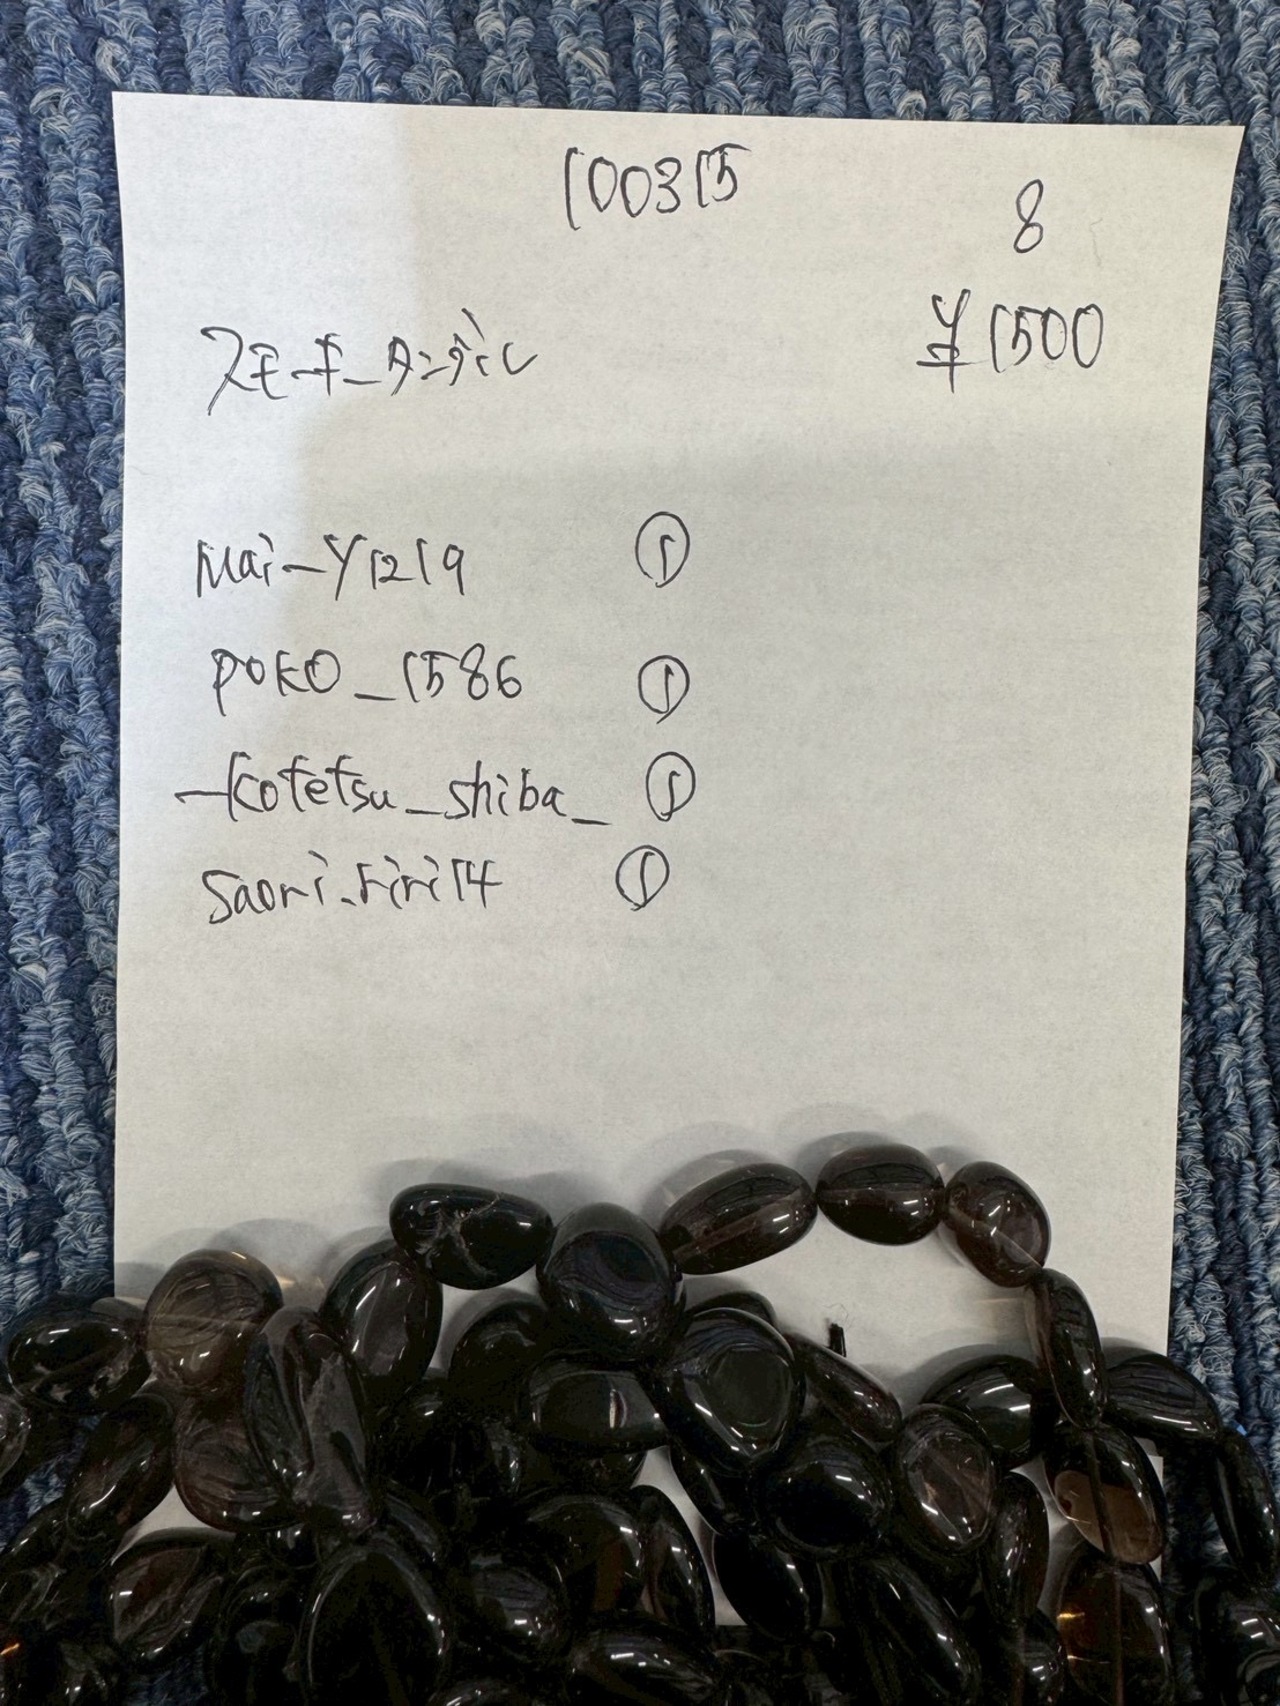 100315
8
スモーキータンブル
¥1500
Mai_y1219 ①
poko_1586 ①
_kotetsu_shiba_ ①
saori.riri14 ①